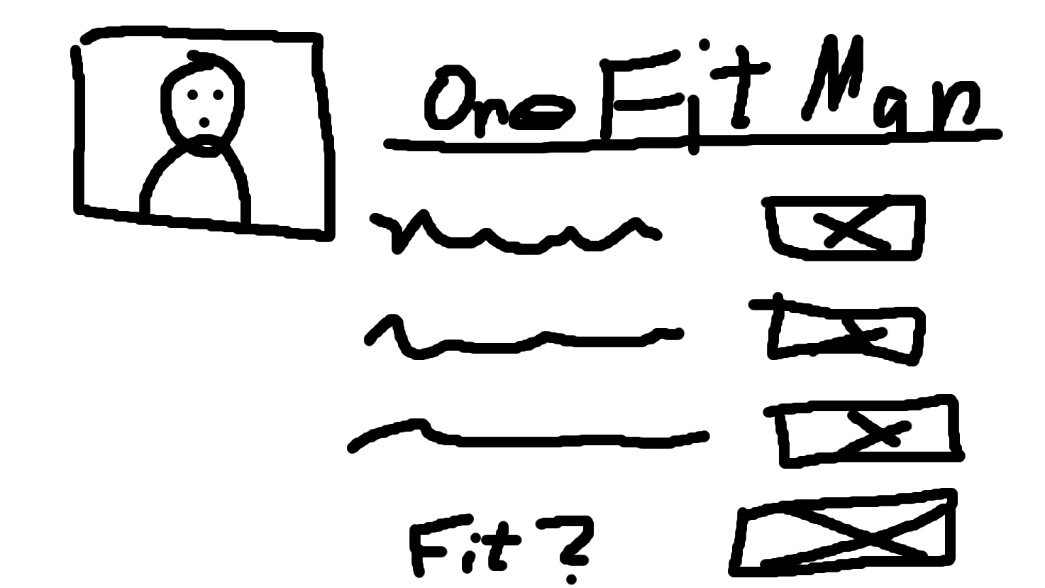 One Fit Man
Fit?